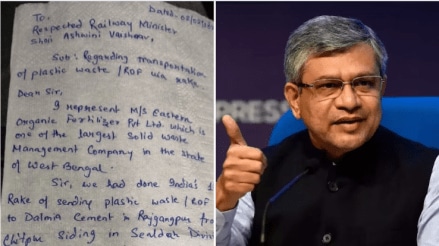 To,
Respected Railway Minister
Shri Ashwini Vaishnaw,
Sub: Regarding transportation
of plastic waste / RDF via rake.
Dear Sir,
I represent M/s Eastern
Organic Fertilizer Pvt Ltd which is
one of the largest Solid Waste
Management Company in the state
of West Bengal.
Sir, we had done India's 1
Rake of sending plastic waste / RDF
to Dalmia Cement in Rajgangpur from
Chitpur Siding in Sealdah Divisi
PRESS